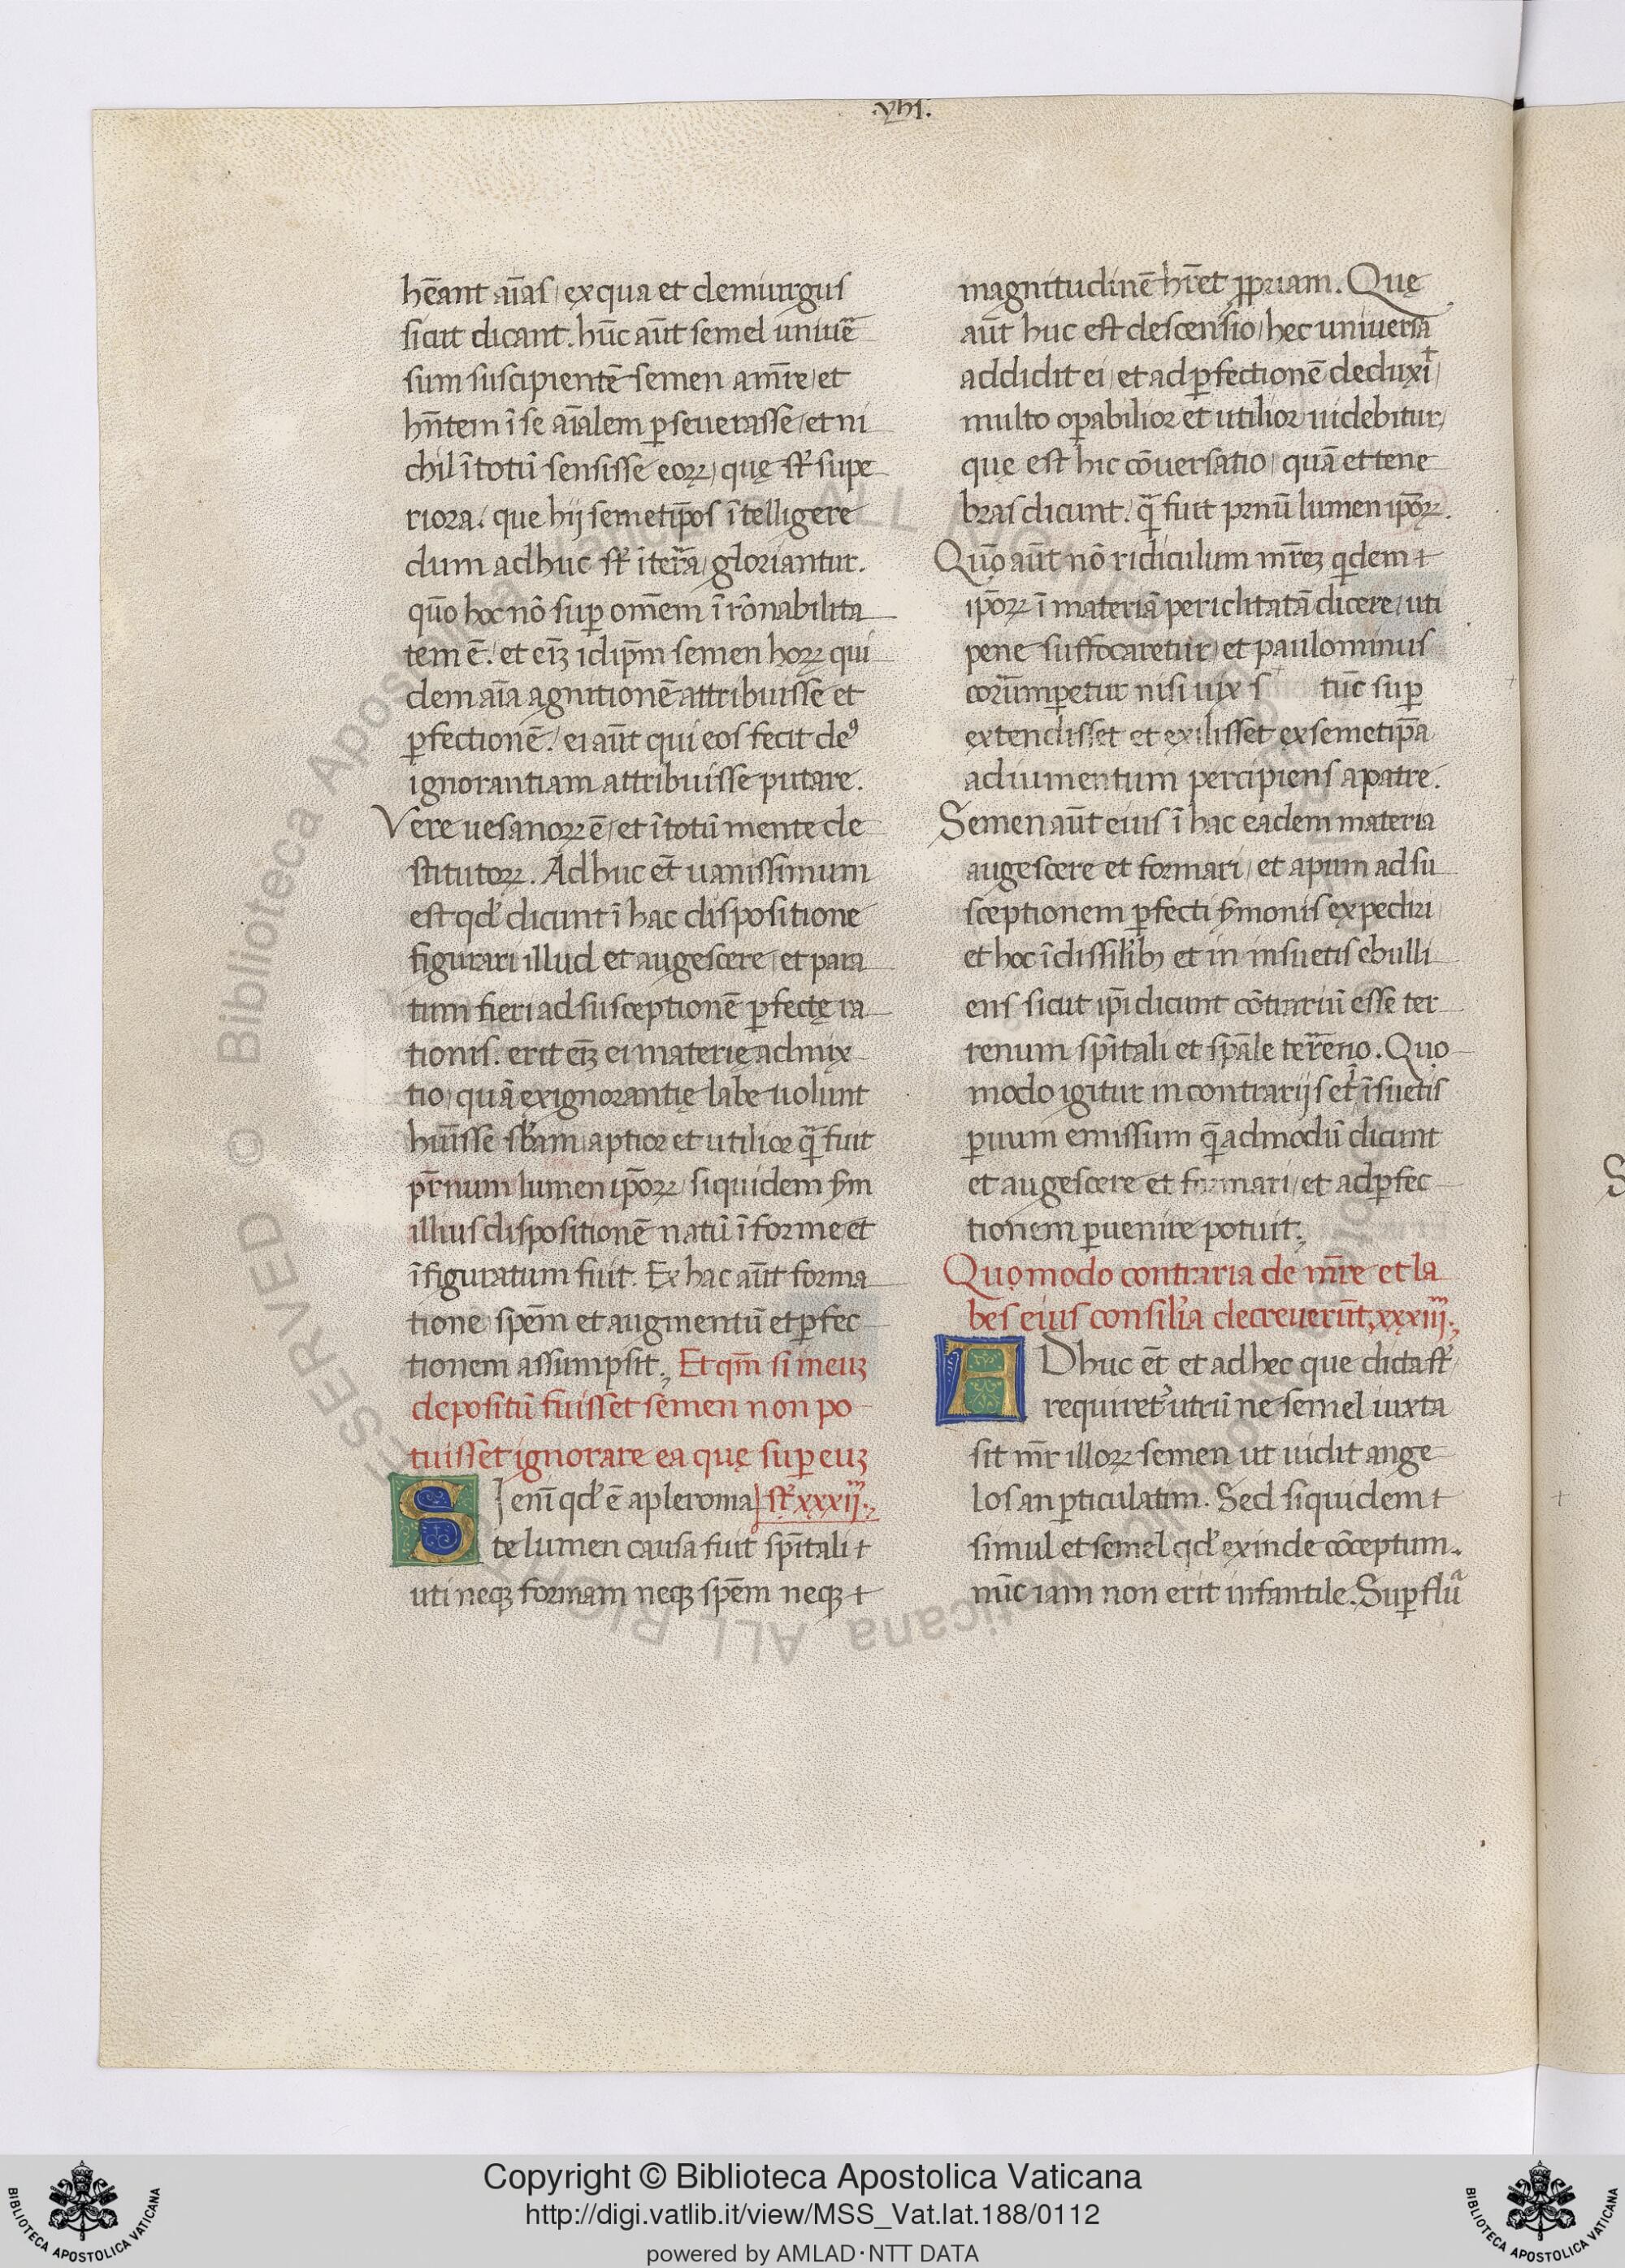 .vhi.
hēant aīas, ex qua et demiurgus
sicut dicunt. hūc aūt semel uniuē
sum suscipientē semen a mr̄e, et
hn̄tem ī se aīalem ꝑseuerasse, et ni
chil ī totū sensisse eoꝝ, quę st̄ supe
riora. que hij semetip̄os ītelligere
dum adhuc st̄ ī terra, gloriantur.
quō hoc nō suꝑ om̄em īrōnabilita
tem ē. et eīꝫ idip̄m semen hoꝝ qui
dem aīa agnitionē attribuisse et
ꝑfectionē. ei aūt qui eos fecit deꝰ
ignorantiam attribuisse putare.
Vere uesanoꝝ ē, et ī totū mente de
stitutoꝝ. Adhuc et̄ uanissimum
est qd' dicunt ī hac dispositione
figurari illud et augescere, et para
tum fieri ad susceptionē ꝑfectę ra
tionis. erit eīꝫ ei materię admix
tio, quā ex ignorantię labe uolunt
hūisse sb̄am, aptior et utilior q̄ fuit
pr̄num lumen ip̄oꝝ, siquidem ẜm
illius dispositionē natū īforme et
īfiguratum fuit. Ex hac aūt forma
tione spēm et augmentū et ꝑfec
tionem assumpsit., Et qm̄ si in euꝫ
depositū fuisset semen non po
tuisset ignorare ea quę suꝑ euꝫ
S]enī qd' ē a pleroma] st̄ xxxiij.,
te lumen causa fuit sp̄itali t
uti neqꝫ formam neqꝫ spēm neqꝫ t
magnitudinē hr̄et ꝓpriam. Quę
aūt huc est descensio, hec universa
addidit ei, et ad ꝑfectionē deduxīt,
multo oꝑabilior et utilior uidebitur,
quę est hic cōuersatio, quā et tene
bras dicunt. q̄ fuit prnū lumen ip̄oꝝ.
Quō aūt nō ridiculum mr̄eꝫ qdem t
ip̄oꝝ ī materiā periclitatā dicere, uti
pene suffocaretur, et paulominus
corūmꝑetur nisi uix s tūc suꝑ
extendisset et exilisset ex semetip̄a
adiumentum percipiens a patre.
Semen aūt eius ī hac eadem materia
augescere et formari, et apum ad su
sceptionem ꝑfecti ẜmonis expediri
et hoc ī dissilibꝫ et in insuetis ebulli
ens sicut ip̄i dicunt cōtrariū esse ter
renum sp̄itali et sp̄ale terreno. Quo
modo igitur in contrarijs et īsuetis
ꝑuum emissum q̄admodū dicunt
et augescere et formari, et ad ꝑfec
tionem ꝑuenire potuit.,
Quomodo contraria de mr̄e et la
bes eius consilia decreuerūt, xxxiiij.,
ADhuc et̄ et ad hec que dicta st̄
requiret' utrū ne semel iuxta
sit mr̄ illoꝝ semen ut uidit ange
los an ꝑticulatim. Sed siquidem t
simul et semel qd' exinde cōceptum.
nūc iam non erit infantile. Suꝑflua
S
Copyright © Biblioteca Apostolica Vaticana
http://digi.vatlib.it/view/MSS_Vat.lat.188/0112
powered by AMLAD·NTT DATA
BIBLIOTECA APOSTOLICA VATICANA
BIBLIOTECA APOSTOLICA VATICANA